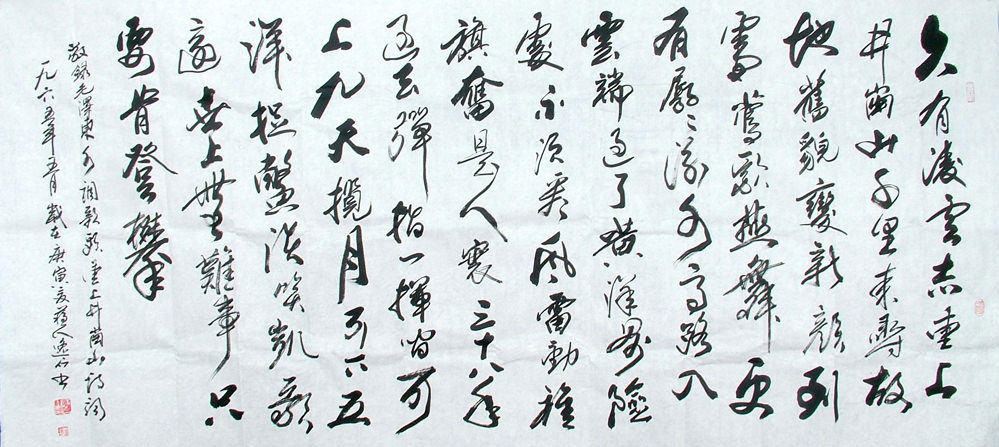 久有凌云志重上
井崗山千里來尋故
地舊貌變新顏到
處鶯歌燕舞更
有潺々流水高路入
雲端過了黃洋界險
處不須看風雷動旌
旗奮是人寰三十八年
過去彈指一揮間可
上九天攬月可下五
洋捉鱉談笑凱歌
還世上無難事只
要肯登攀
敬錄毛澤東水調歌頭重上井崗山詩詞
一九六五年五月 歲在庚寅夏 逸石書